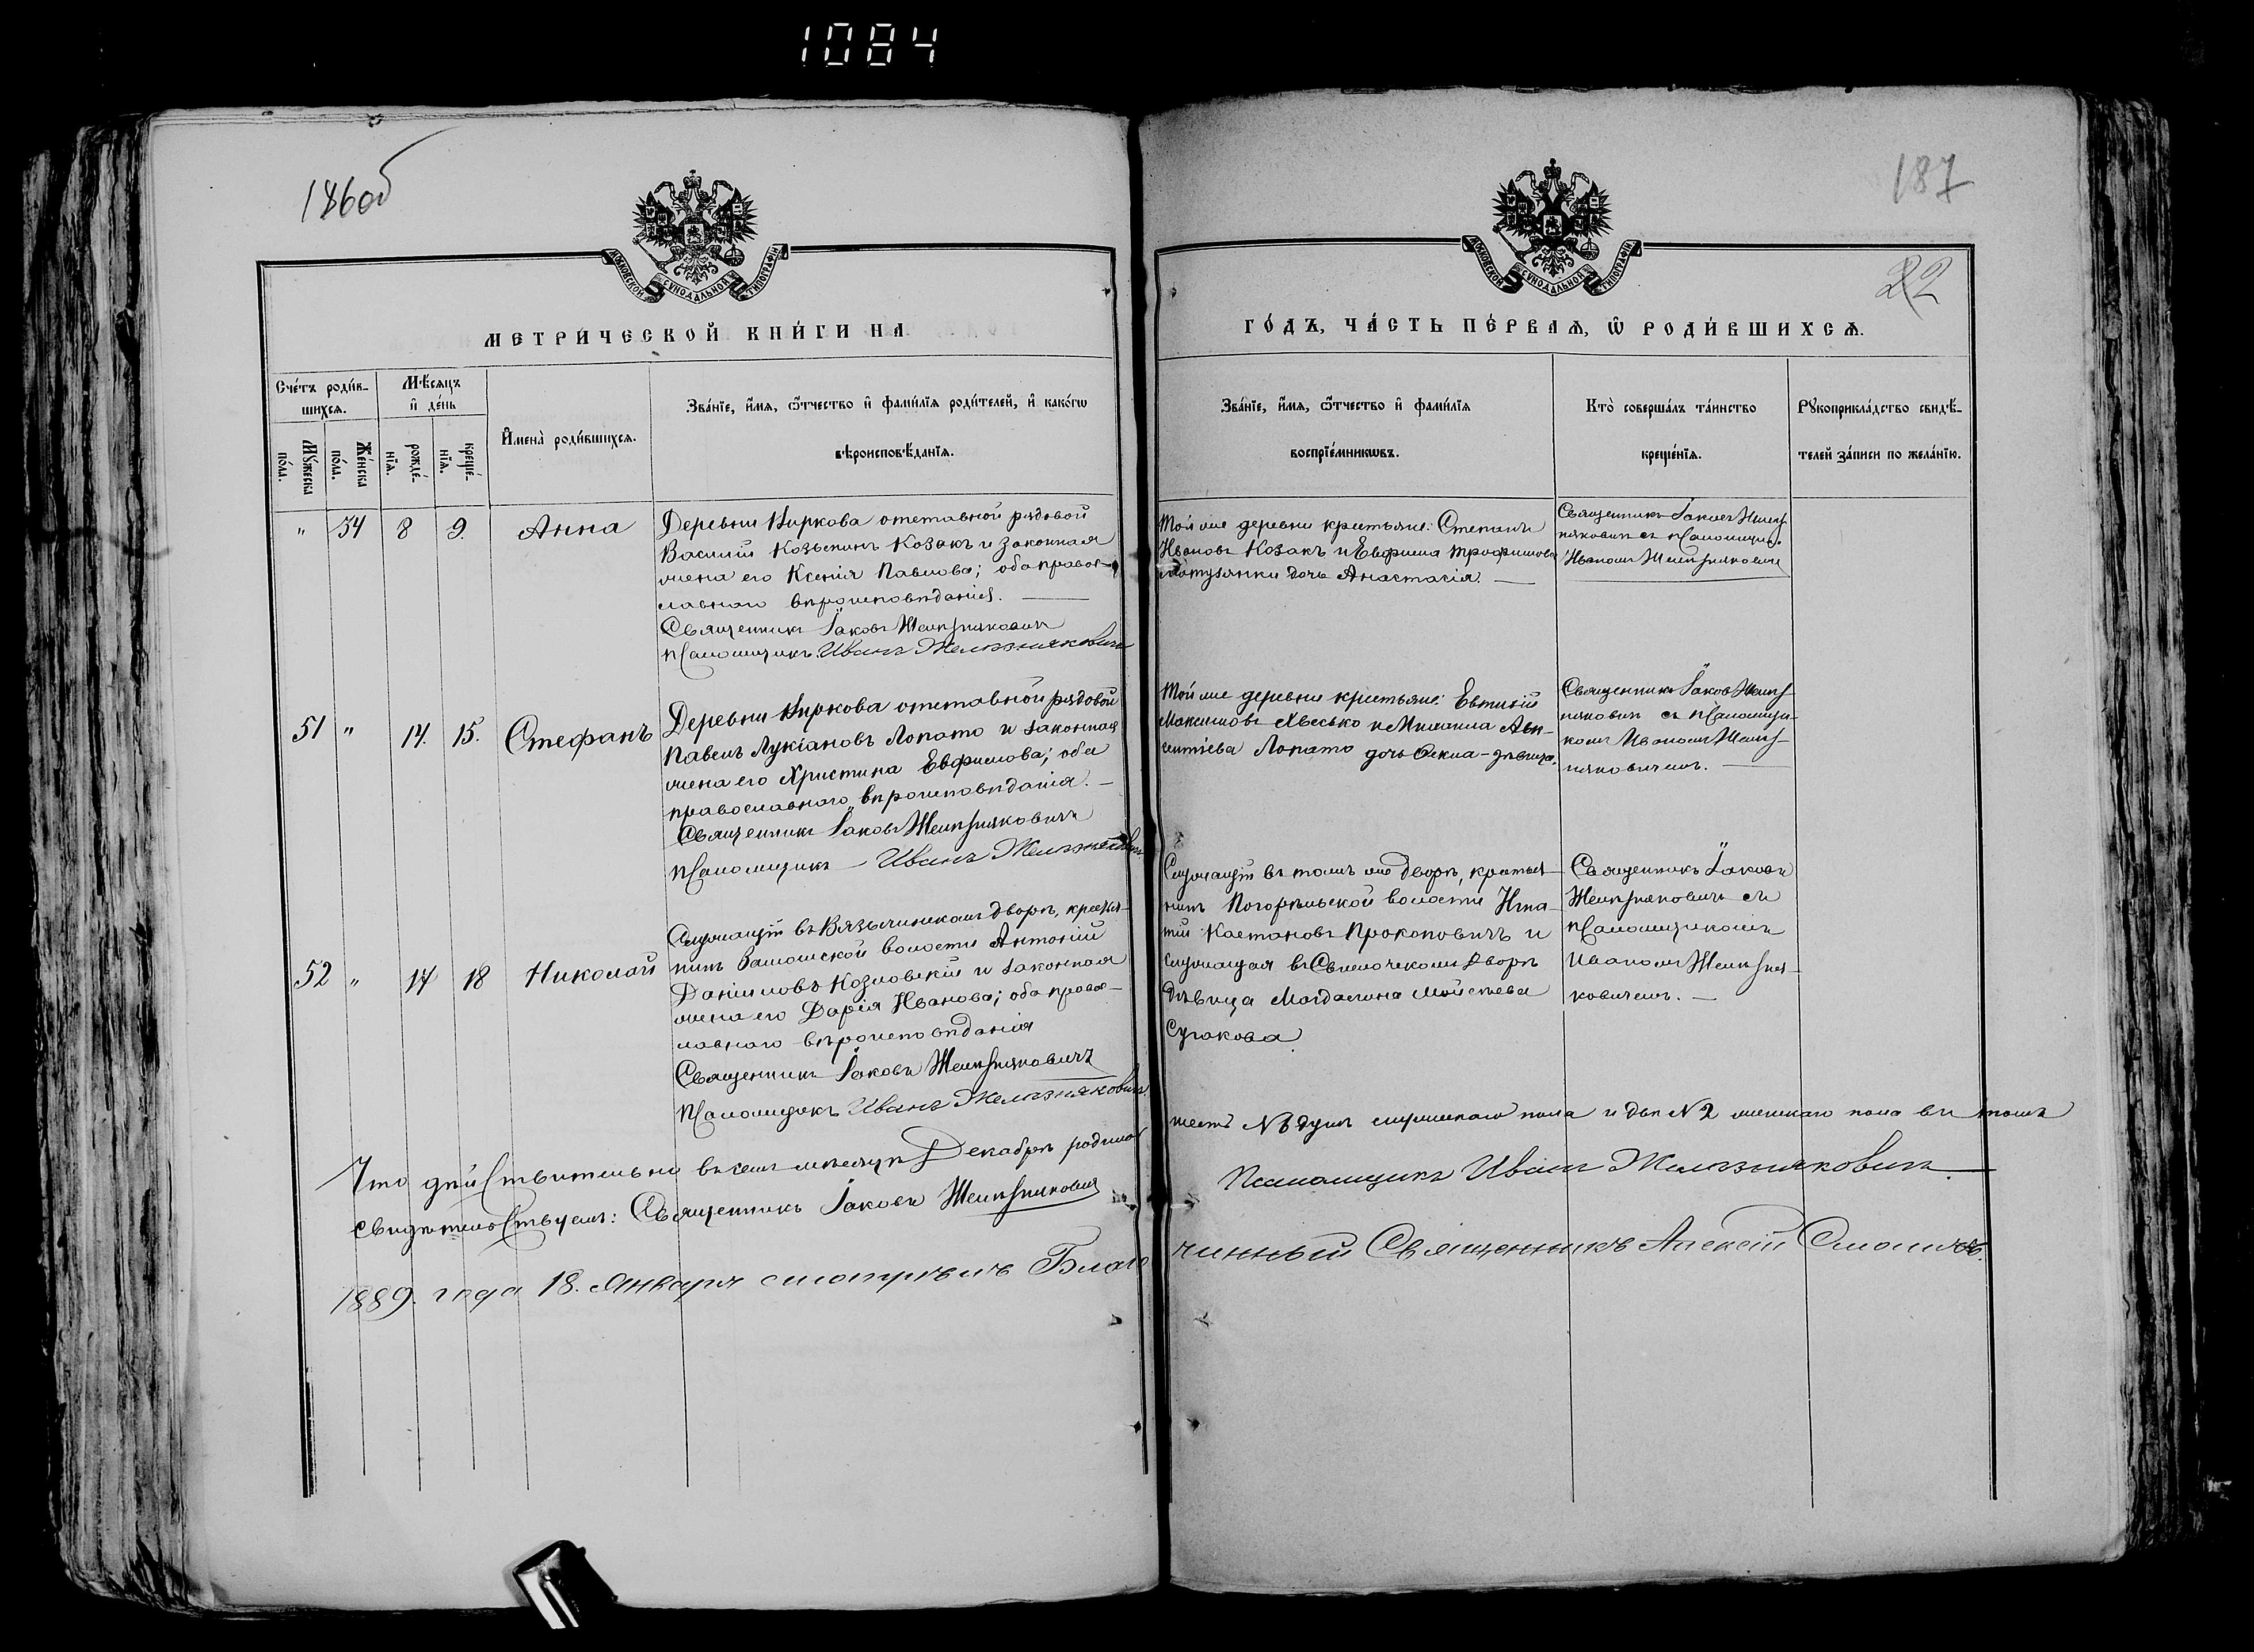 1084
186об
187
22
МОСКОВСКОЙ СУНОДАЛЬНОЙ ТИПОГРАФІИ
МОСКОВСКОЙ СУНОДАЛЬНОЙ ТИПОГРАФІИ
МЕТРИ́ЧЕСКОЙ КНИ́ГИ НА
ГО́ДЪ, ЧА́СТЬ ПЕ́РВАѦ, Ѽ РОДИ́ВШИХСѦ.
Сче́тъ роди́в-
шихсѧ.
Мѣ́сѧцъ
и҆ де́нь
Мꙋ́жеска
по́ла.
Же́нска
по́ла.
рожде́-
нїѧ.
креще́-
нїѧ.
И҆мена̀ роди́вшихсѧ.
Зва́нїе, и҆́мѧ, ѻ҆́тчество и҆ фами́лїѧ роди́телей, и҆ како́гѡ
вѣроисповѣ́данїѧ.
Зва́нїе, и҆́мѧ, ѻ҆́тчество и҆ фами́лїѧ
воспрїе́мникѡвъ.
Кто̀ соверша́лъ та́инство
креще́нїѧ.
Рꙋкоприкла́дство свидѣ́-
телей за́писи по жела́нїю.
" 34 8 9. Анна
Деревни Киркова отставной рядовой
Василій Козакъ и законная
жена его Ксенія Павлова; оба правос-
лавнаго вѣроисповѣданія.
Священникъ Іаковъ Желѣзняковичъ
Псаломщикъ Иванъ Желѣзняковичъ
Той же деревни крестьяне: Степанъ
Ивановъ Козакъ и Евфима Трофимова
дочь Анастасія.
Священникъ Іаковъ Желѣз-
няковичъ съ Псаломщик.
Иваномъ Желѣзняковичемъ
51 " 14. 15. Стефанъ
Деревни Киркова отставной рядовой
Павелъ Лукіановъ Лопато и законная
жена его Христина Евфимова; оба
православнаго вѣроисповѣданія.
Священникъ Іаковъ Желѣзняковичъ
Псаломщикъ Иванъ Желѣзняковичъ
Той же деревни крестьяне: Евтихій
Максимовъ Хвесько и
Лопато дочь дѣвица.
Священникъ Іаковъ Желѣз-
няковичъ съ Псаломщи-
комъ Иваномъ Желѣз-
няковичемъ.
52 " 17 18 Николай
Служащій въ Вязычинскомъ дворѣ, крестья-
нинъ волости Антоній
Даніиловъ Козловскій и законная
жена его Дарія Иванова; оба правос-
лавнаго вѣроисповѣданія
Священникъ Іаковъ Желѣзняковичъ
Псаломщикъ Иванъ Желѣзняковичъ
Служащій въ томъ же дворѣ, крестья-
нинъ Погорѣльской волости Игна-
тій Каетановъ Прокоповичъ и
служащая въ дворѣ
дѣвица Магдалина Мойсѣева
Сучкова
Священникъ Іаковъ
Желѣзняковичъ съ
Псаломщикомъ
Иваномъ Желѣзня-
ковичемъ.
Что дѣйствительно въ семъ мѣсяцѣ Декабрѣ родилось
шесть №6 душъ мужескаго пола и двѣ №2 женскаго пола въ томъ
свидѣтельствуемъ: Священникъ Іаковъ Желѣзняковичъ
Псаломщикъ Иванъ Желѣзняковичъ
1889. года 18. Января Благо
чинный Священникъ Алексій